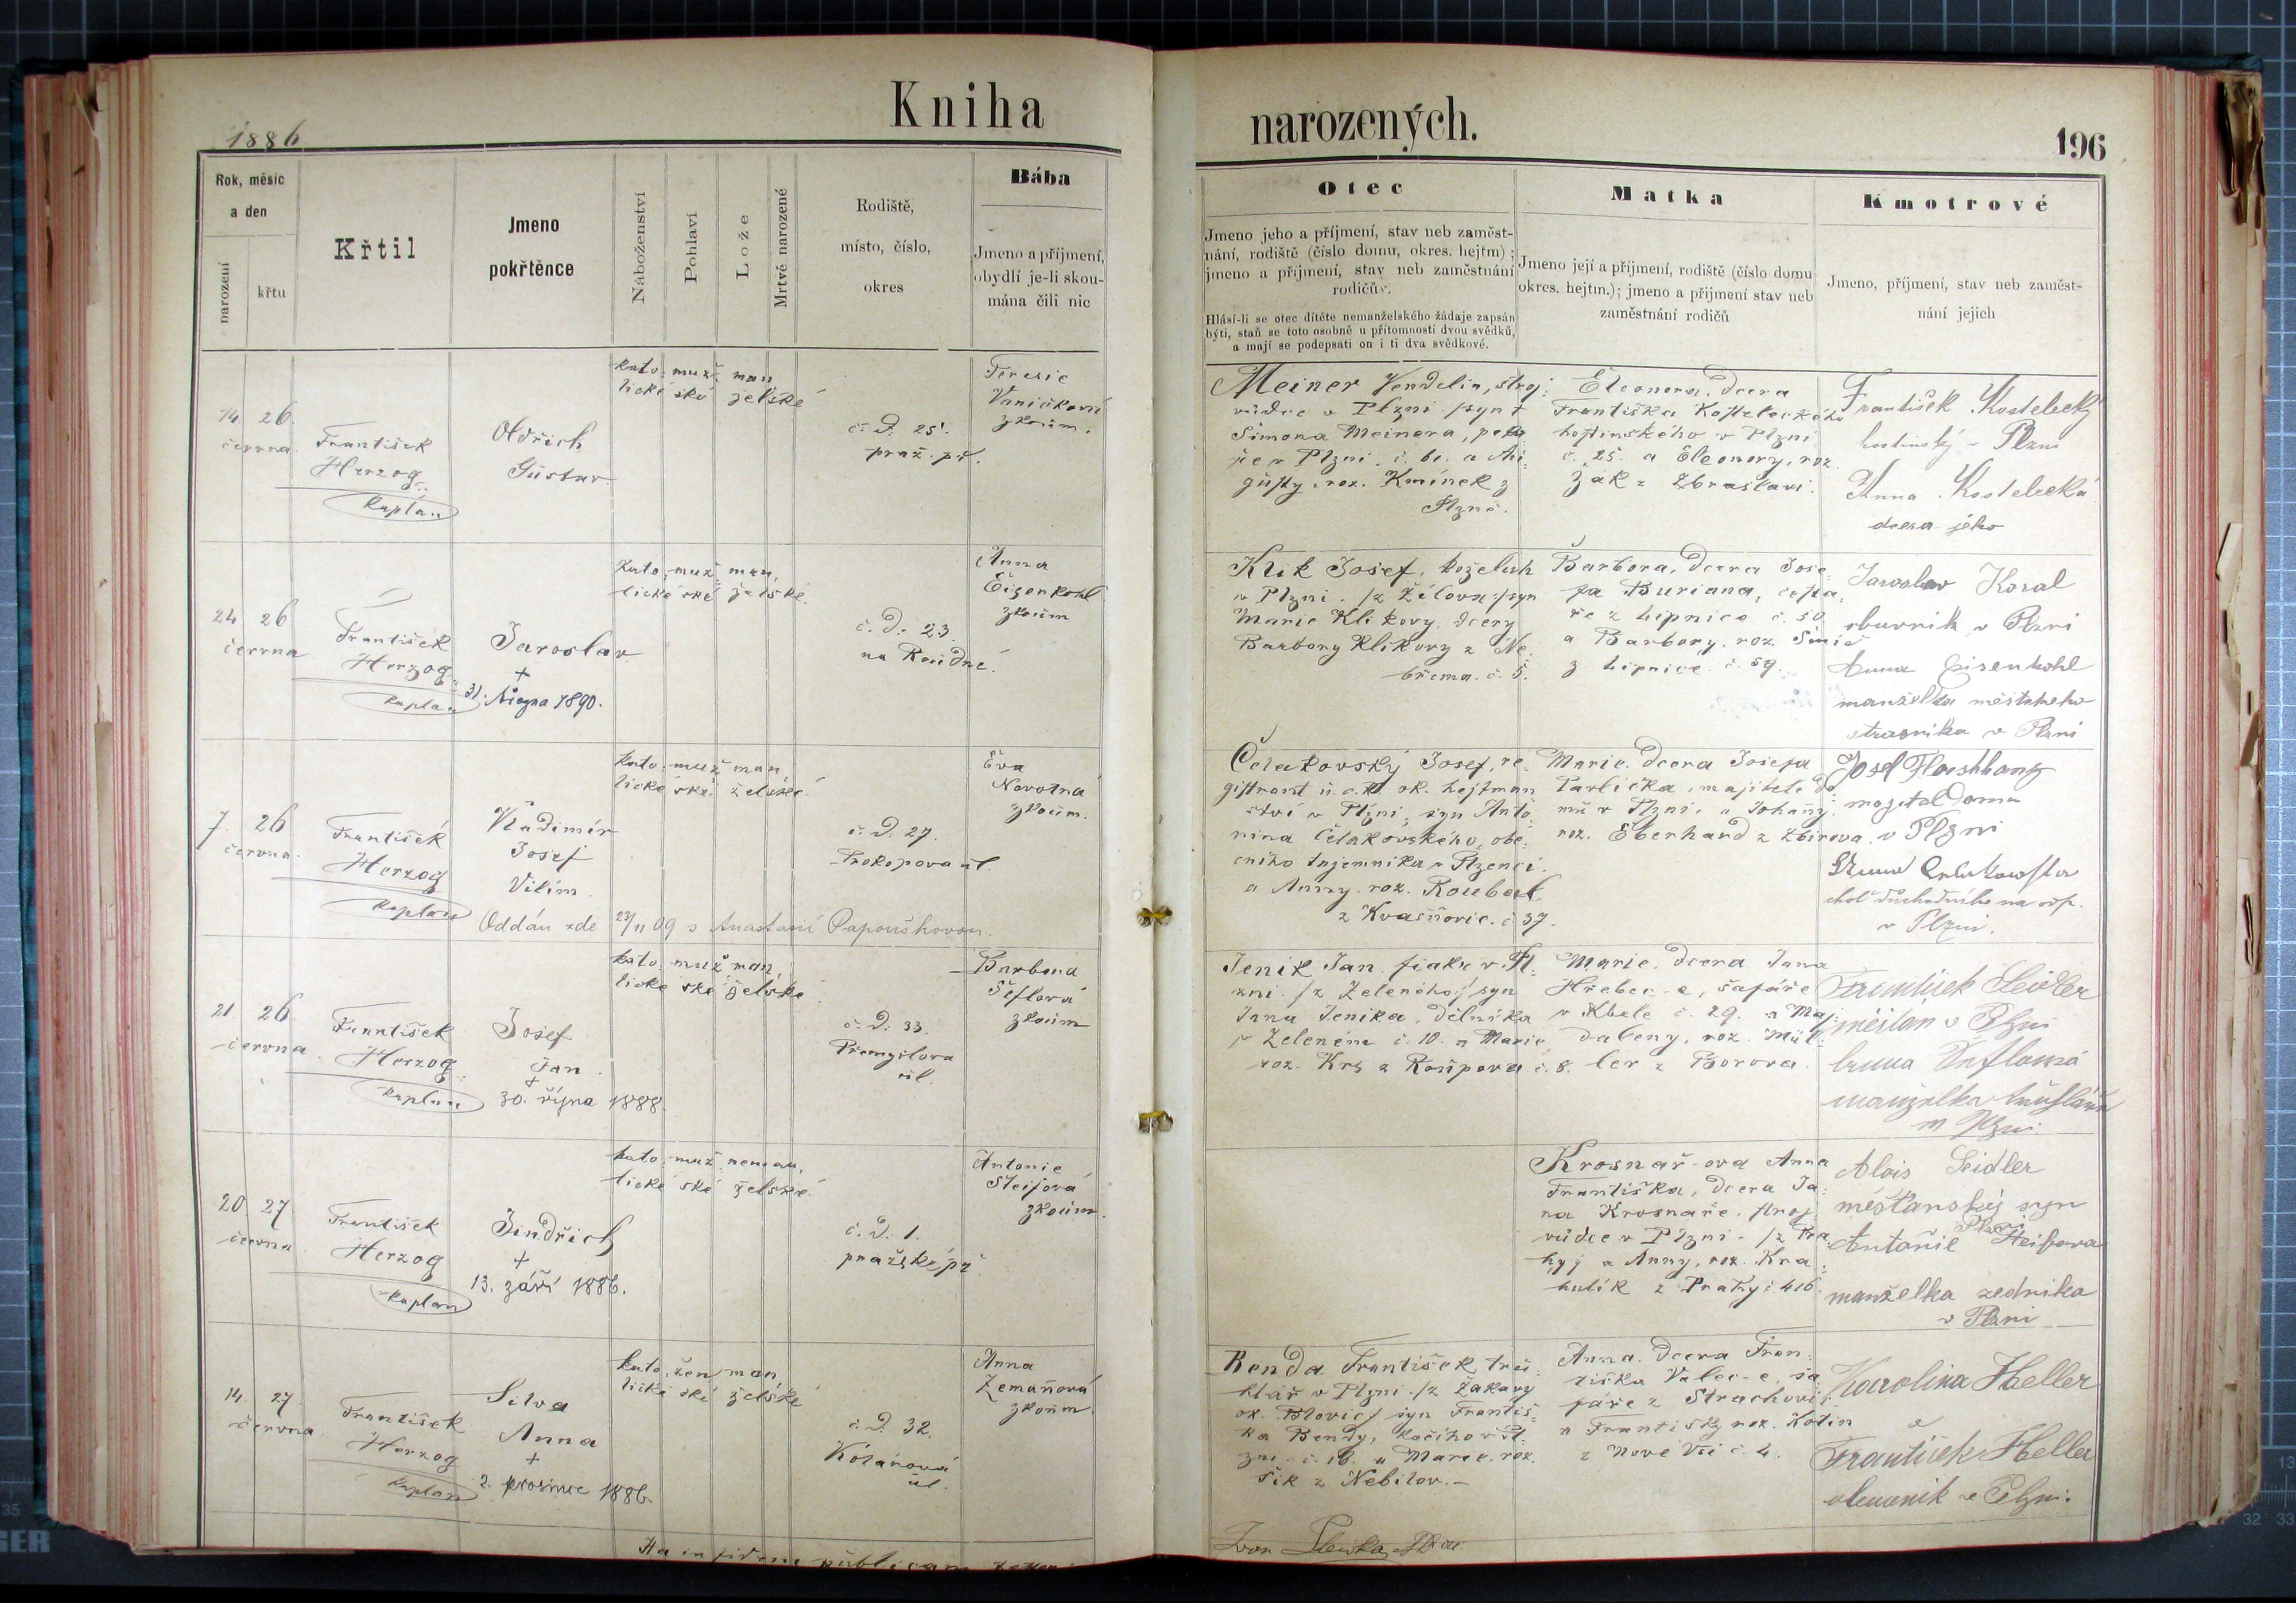 Kniha
narozených.
1886
196
Rok, měsíc
a den
narození
křtu
Křtil
Jmeno
pokřtěnce
Náboženství
Pohlaví
Lože
Mrtvě narozené
Rodiště,
místo, číslo,
okres
Bába
Jmeno a příjmení,
obydlí je-li skou-
mána čili nic
Otec
Jmeno jeho a příjmení, stav neb zaměst-
nání, rodiště (číslo domu, okres. hejtm) ;
jmeno a příjmení, stav neb zaměstnání
rodičův.
Hlásí-li se otec dítěte nemanželského žádaje zapsán
býti, staň se toto osobně u přítomnosti dvou svědků,
a mají se podepsati on i ti dva svědkové.
Matka
Jmeno její a příjmení, rodiště (číslo domu
okres. hejtm.); jmeno a příjmení stav neb
zaměstnání rodičů
Kmotrové
Jmeno, příjmení, stav neb zaměst-
nání jejich
14. 26.
června
František
Herzog
kaplan
Oldřich
Gustav
kato: muž: man
lické ské želské
č. d. 25.
praž. př.
Teresie
Vaničková
zkoum.
Meiner Vendelin, stroj:
vůdce v Plzni syn †
Šimona Meinera, peka
ře v Plzni č. 61. a Au:
gusty, roz. Kmínek z
Plzně.
Eleonora, dcera
Františka Kosteleckého
hostinského v Plzni
č. 25. a Eleonory, roz.
Žák z Zbraslavi.
František Kostelecký
hostinský v Plzni
Anna Kostelecká
dcera jeho
24 26
června
František
Herzog
kaplan
Jaroslav
+
31. srpna 1890.
kato: muž: man,
lické ské želské.
č. d. 23.
na Roudné.
Anna
Eisenkohl
zkoum
Klik Josef, koželuh
v Plzni /z Žilova/ syn
Marie Klikovy, dcery
Barbory Klikovy z Ne:
břema. č. 5.
Barbora, dcera Jose:
fa Buriana, cesta,
ře z Lipnice č. 50
a Barbory, roz. Šmíd
z Lipnice č. 59.
Jaroslav Koral
obuvník v Plzni
Anna Eisenkohl
manželka městského
strážníka v Plzni
7. 26
června.
František
Herzog
kaplan
Vladimír
Josef
Vilím
Oddán zde 23/11 09 s Anastasií Papouškovou.
kato: muž: man,
lické ské želské.
č. d. 27.
Prokopova ul.
Eva
Novotná
zkoum.
Čelakovský Josef, re:
gistrant u c.k. ok. hejtman
ství v Plzni, syn Anto
nína Čelakovského, obe:
cního tajemníka v Plzenci.
a Anny, roz. Roubal
z Kvasňovic. č 37.
Marie, dcera Josefa
Pavlíčka, majitele do
mu v Plzni, a Johany.
roz. Eberhand z Zbirova.
magetel Domu
v Plzni
choť důchodního na odp.
v Plzni.
21 26
června
František
Herzog
kaplan
Josef
Jan
+
30. října 1888.
kato: muž: man,
lické ské želské.
č. d. 33.
Přemyslova
ul.
Barbora
Šeflová
zkoum
Jeník Jan, fiakr v Pl:
zni. /z Zeleného/ syn
Jana Jeníka, dělníka
v Zeleném č. 10. a Marie
roz. Krs z Roupova č. 8.
Marie, dcera Jana
Hřebec-e, šafáře
v Kbele č. 29. a Ma:
daleny, roz. Mül:
ler z Borova.
František Seidler
měšťan v Plzni
manželka
v Plzni
20 27
června
František
Herzog
kaplan
Jindřich
+
13. září 1886.
kato: muž: neman,
lické ské želské.
č. d. 1.
pražské př.
Antonie
Šteifová
zkoum.
Krosnář-ova Anna
Františka, dcera Ja:
na Krosnaře, stroj.
vůdce v Plzni - /z Pra
hy/ a Anny, roz. Kra:
hulík z Prahy č. 416.
Alois Seidler
měšťanský syn
v Plzni
Antonie Šteifova
manželka zedníka
v Plzni
14. 27.
června
František
Herzog
kaplan
Silva
Anna
+
2. prosince 1886.
kato, žen, man,
lické ské želské
č. d. 32.
Kolárova
ul.
Anna
Zemanová
zkoum.
Benda František tru:
hlář v Plzni /z Žakavy
ok. Blovic/ syn Františ:
ka Bendy, kočího v Pl:
zni č. 16. a Marie, roz.
Šik z Nebílov.-
Anna, dcera Fran:
tiška Valec-e, ša
fáře z Strachovic
a Františky roz. Kotin
z Nové Vsi č. 4.
Karolina Heller
a
František Heller
obuvník v Plzni.